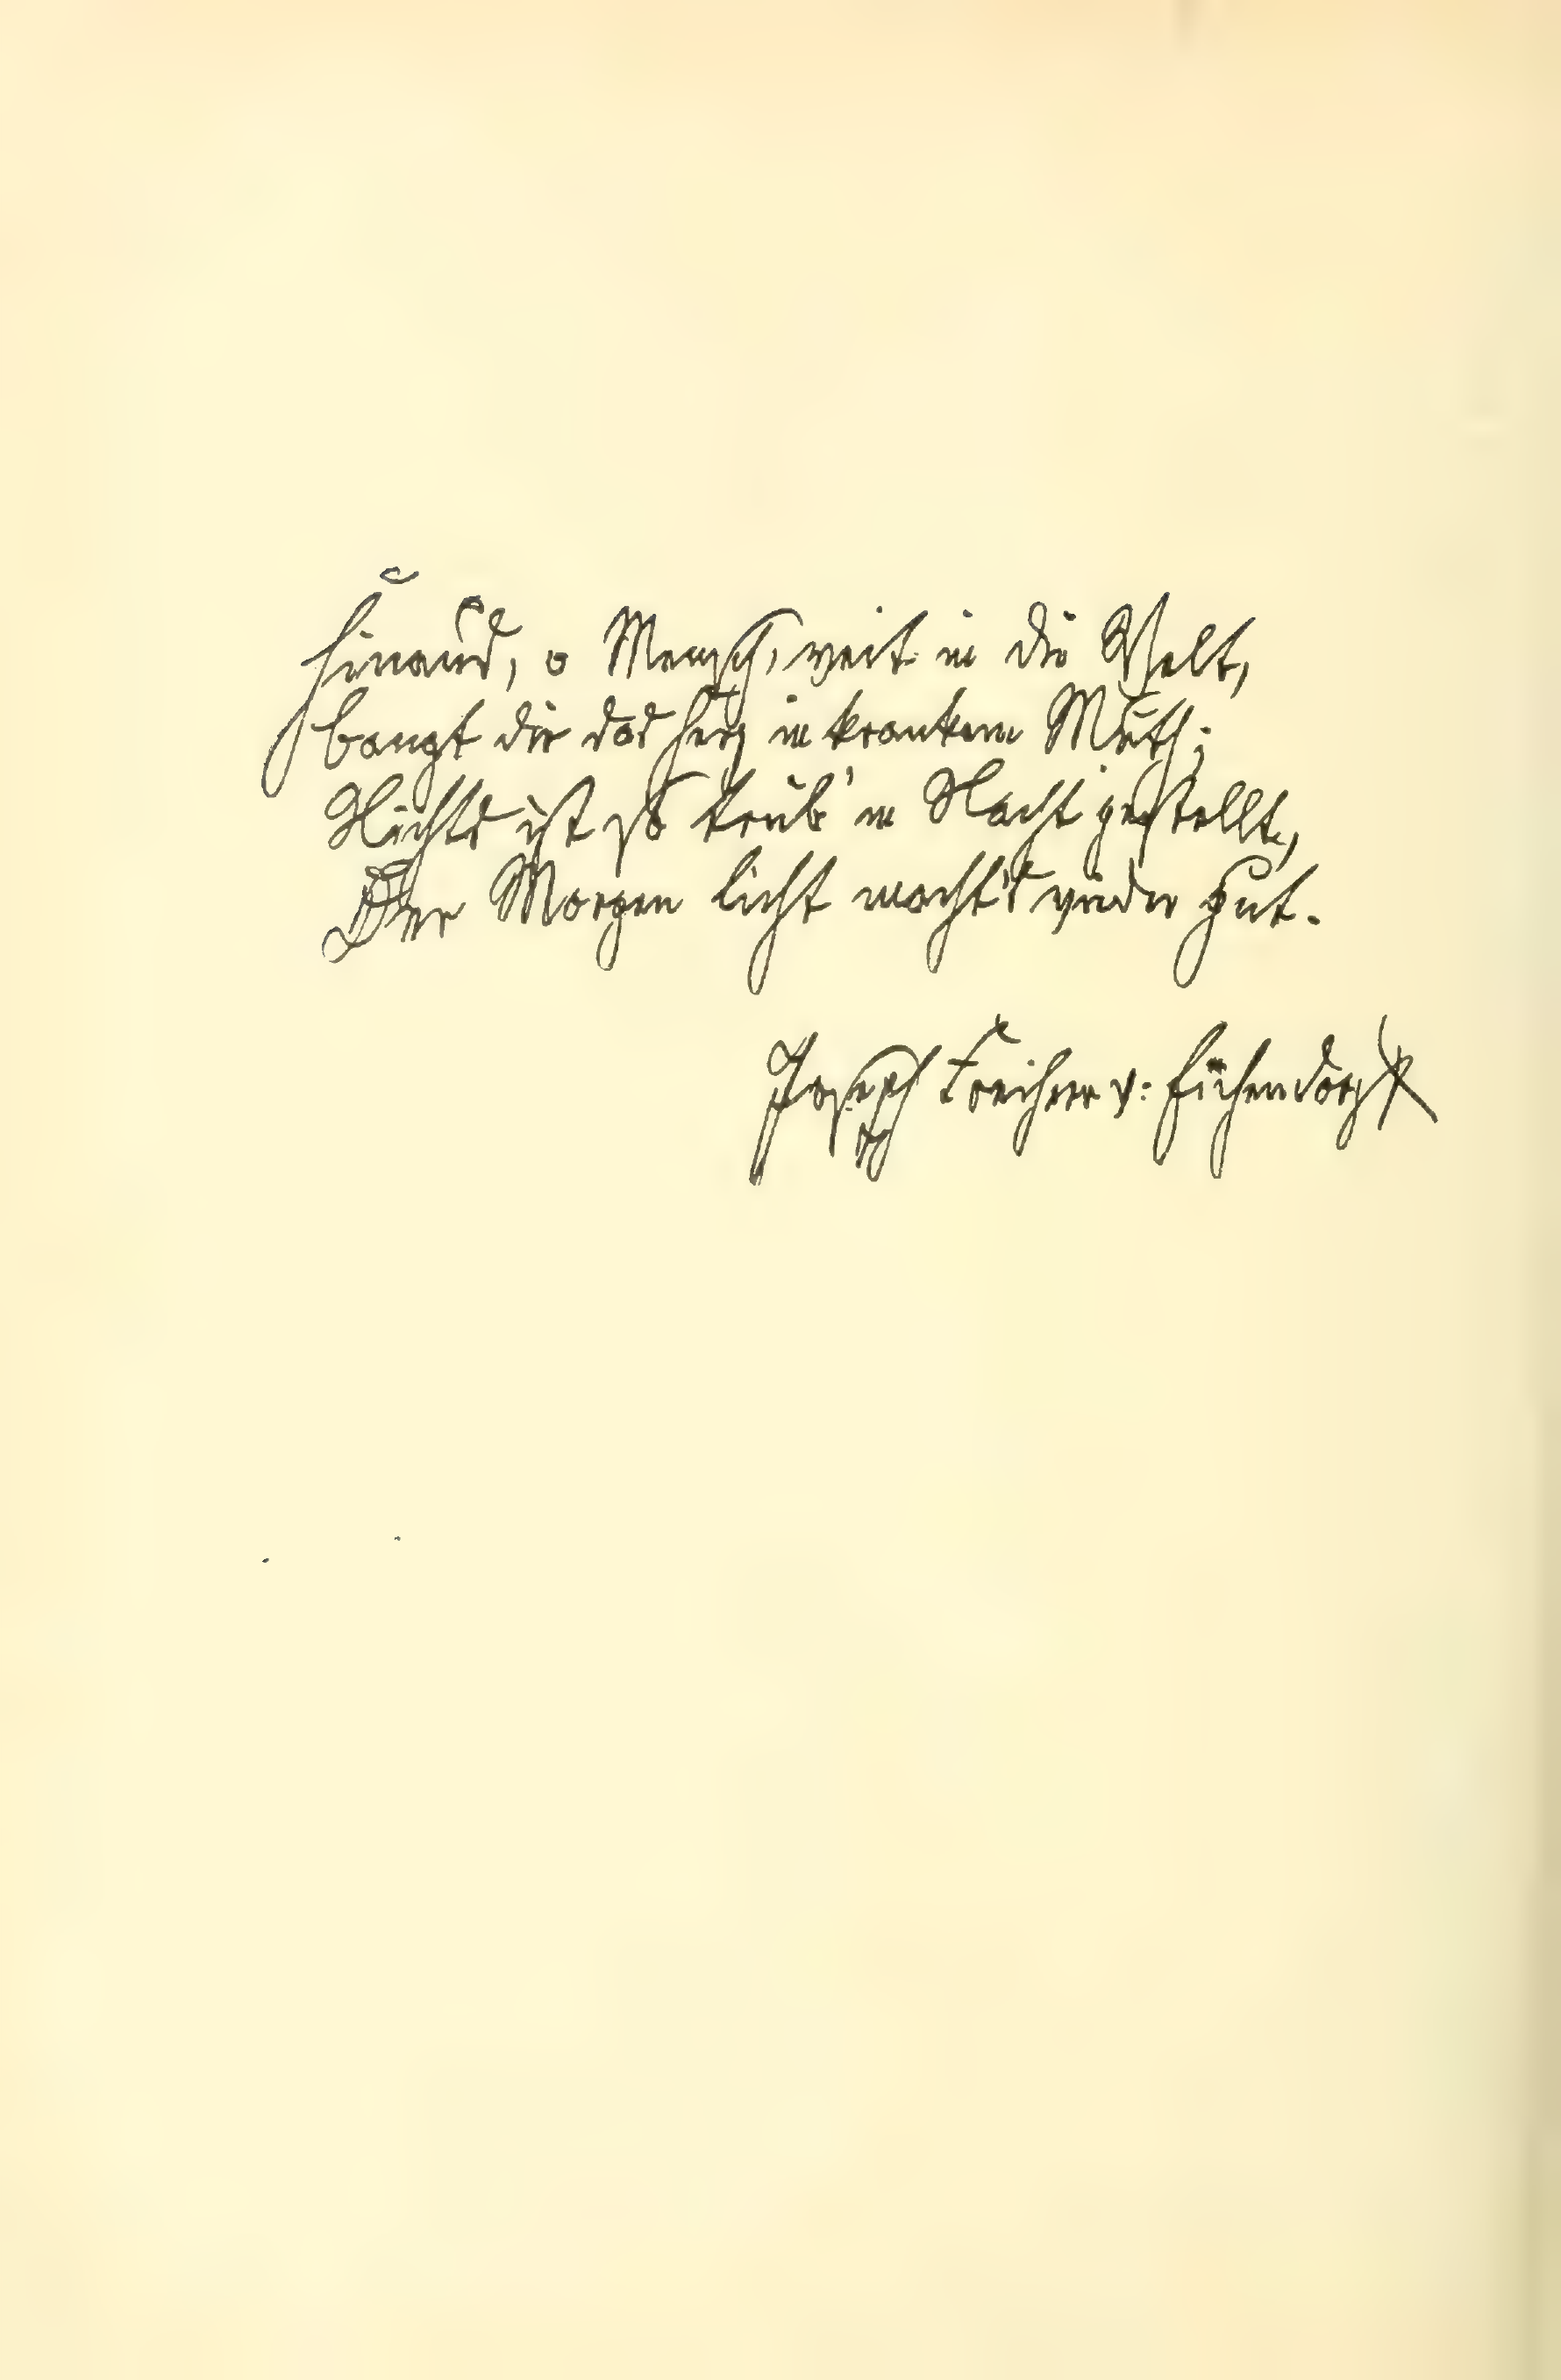 Hinaus, o Mensch, weit in die Welt,
bangt dir das Herz in krankem Muth;
Nichts ist so trüb' in Nacht gestellt,
Der Morgen licht macht's wieder gut.
Joseph Freiherr v: Eichendorff